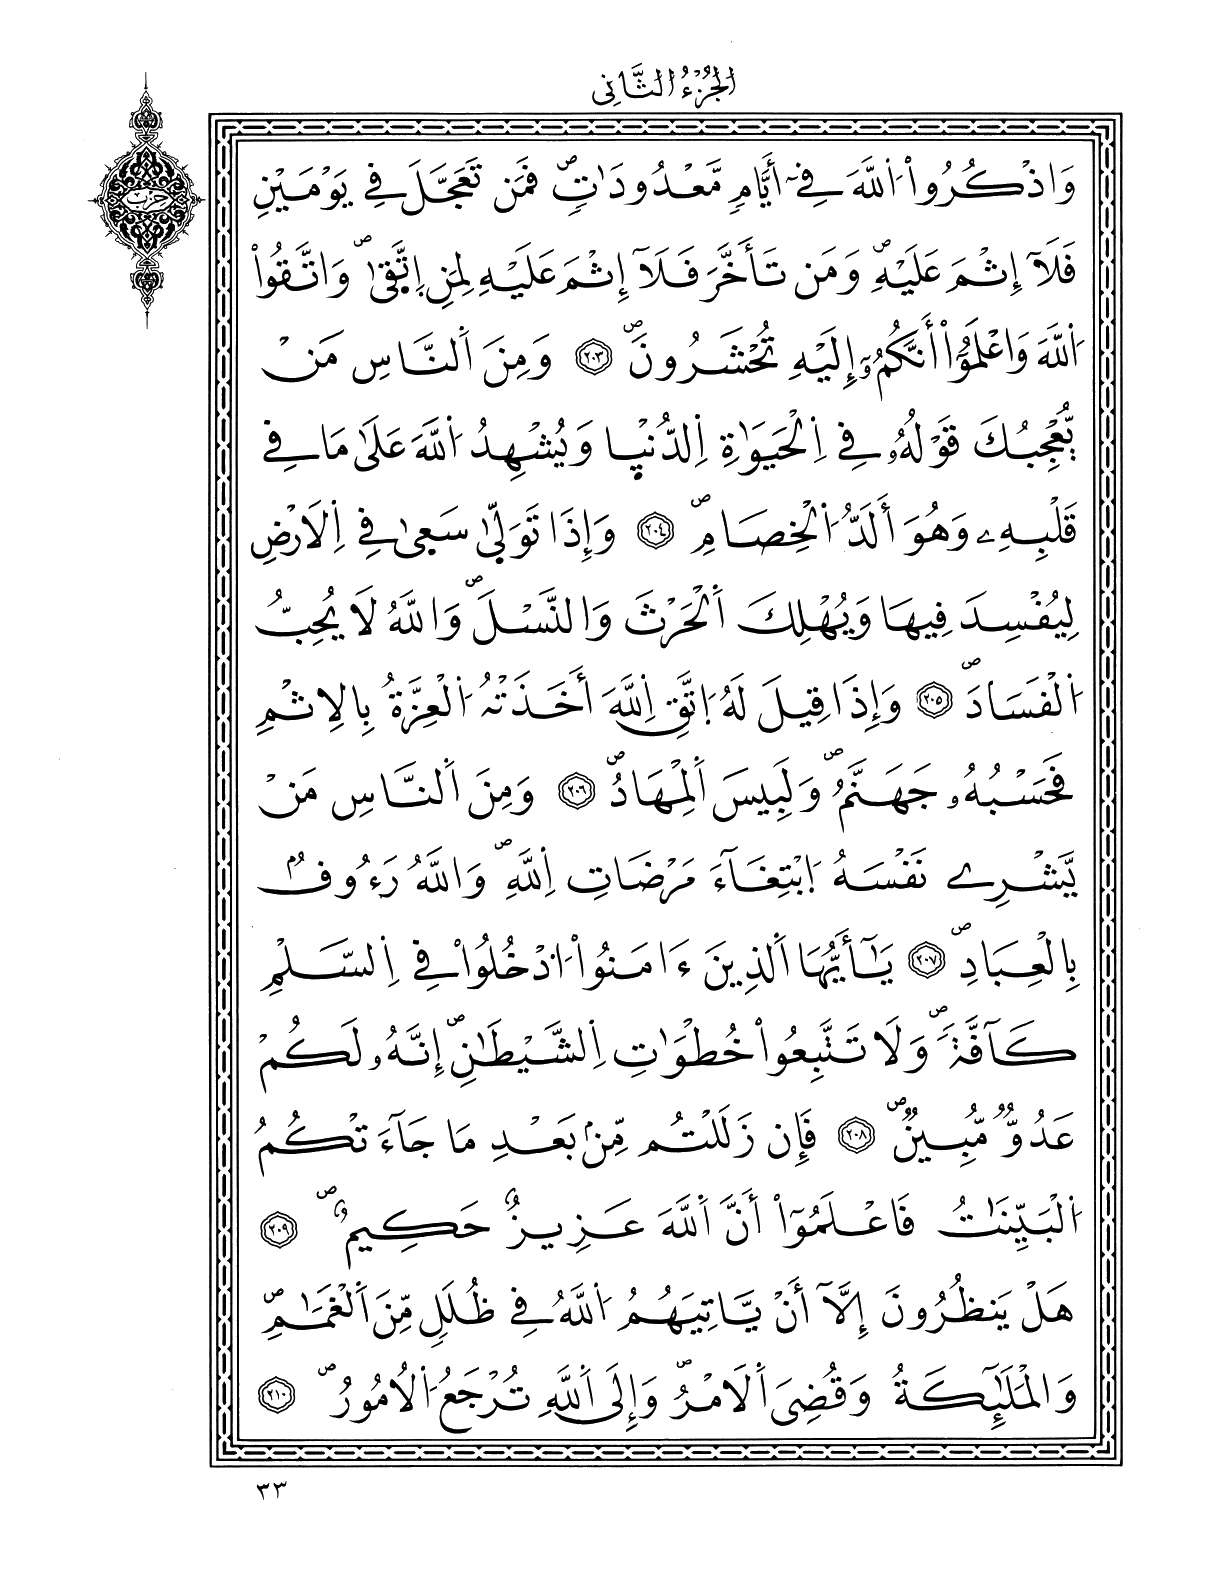 الجُزْءُ الثَّانِى
حزب
وَاذْكُرُواْ اُ۬للَّهَ فِےٓ أَيَّامٖ مَّعْدُودَٰتٖۖ فَمَن تَعَجَّلَ فِے يَوْمَيْنِ
فَلَآ إِثْمَ عَلَيْهِۖ وَمَن تَأَخَّرَ فَلَآ إِثْمَ عَلَيْهِ لِمَنِ اِ۪تَّق۪ىٰۖ وَاتَّقُواْ
اُ۬للَّهَ وَاعْلَمُوٓاْ أَنَّكُمُۥٓ إِلَيْهِ تُحْشَرُونَۖ ٢٠٣ وَمِنَ اَ۬لنَّاسِ مَنْ
يُّعْجِبُكَ قَوْلُهُۥ فِے اِ۬لْحَيَوٰةِ اِ۬لدُّنْي۪ا وَيُشْهِدُ اُ۬للَّهَ عَلَىٰ مَا فِے
قَلْبِهِۦ وَهُوَ أَلَدُّ اُ۬لْخِصَامِۖ ٢٠٤ وَإِذَا تَوَلّ۪ىٰ سَع۪ىٰ فِے اِ۬لَارْضِ
لِيُفْسِدَ فِيهَا وَيُهْلِكَ اَ۬لْحَرْثَ وَالنَّسْلَۖ وَاللَّهُ لَا يُحِبُّ
اُ۬لْفَسَادَۖ ٢٠٥ وَإِذَا قِيلَ لَهُ اُ۪تَّقِ اِ۬للَّهَ أَخَذَتْهُ اُ۬لْعِزَّةُ بِالِاثْمِ
فَحَسْبُهُۥ جَهَنَّمُۖ وَلَبِيسَ اَ۬لْمِهَادُۖ ٢٠٦ وَمِنَ اَ۬لنَّاسِ مَنْ
يَّشْرِے نَفْسَهُ اُ۪بْتِغَآءَ مَرْضَاتِ اِ۬للَّهِۖ وَاللَّهُ رَءُوفُۢ
بِالْعِبَادِۖ ٢٠٧ يَٰٓأَيُّهَا اَ۬لذِينَ ءَامَنُواْ اُ۟دْخُلُواْ فِے اِ۬لسَّلْمِ
كَآفَّةٗۖ وَلَا تَتَّبِعُواْ خُطْوَٰتِ اِ۬لشَّيْطَٰنِۖ إِنَّهُۥ لَكُمْ
عَدُوّٞ مُّبِينٞۖ ٢٠٨ فَإِن زَلَلْتُم مِّنۢ بَعْدِ مَا جَآءَتْكُمُ
اُ۬لْبَيِّنَٰتُ فَاعْلَمُوٓاْ أَنَّ اَ۬للَّهَ عَزِيزٌ حَكِيمٌۖ ٢٠٩
هَلْ يَنظُرُونَ إِلَّآ أَنْ يَّاتِيَهُمُ اُ۬للَّهُ فِے ظُلَلٖ مِّنَ اَ۬لْغَمَٰمِۖ
وَالْمَلَٰٓئِكَةُ وَقُضِيَ اَ۬لَامْرُۖ وَإِلَى اَ۬للَّهِ تُرْجَعُ اُ۬لُامُورُۖ ٢١٠
٣٣